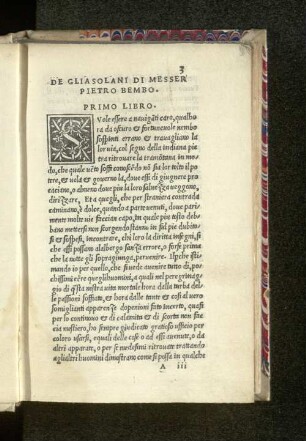 3
DE GLI ASOLANI DI MESSER
PIETRO BEMBO.
PRIMO LIBRO.
SVole essere a naviganti caro, qualho
ra da oscuro & fortunevole nembo
sospinti errano & travagliano la
lor via, col segno della indiana pie
tra ritrovare la tramontana in mo-
do, che quale vento soffi conoscẽdo nõ sia lor tolto il po
tere, & vela & governo là, dove essi di giugnere pro
cacciano, o almeno dove piu la loro salvezza veggono,
dirizzare. Et a quegli, che per straniera contrada
caminano, è dolce, quando a parte venuti, dove pari-
mente molte vie faccian capo, in qual piu tosto debban
si mettere non scorgendo
ti & sospesi, incontrare, chi loro la diritta insegni, si
che essi possan alalbergo sanza errore, o forse prima
che la notte gli sopragiunga, pervenire. Ilperche istimã
do io per quello, che si vede avenire tutto dì, po-
chissimi esser quegli huomini, a quali nel pere grinag
gio di q̃sta nostra vita mortale hora dalla turba delle
passioni soffiato, & hora dalle tante & cosi al vero so
miglianti apparenze d'openioni fatto incerto, quasi
per lo continuo & di calamita & di scorta non sia
mestiero, ho sempre giudicato gratioso ufficio per
coloro usarsi, equali delle cose o ad essi avenute, o da
altri apparate, o per se medesimi ritrovate trattando
a gli altri huomini dimostrano come si possa in qualche
A iii